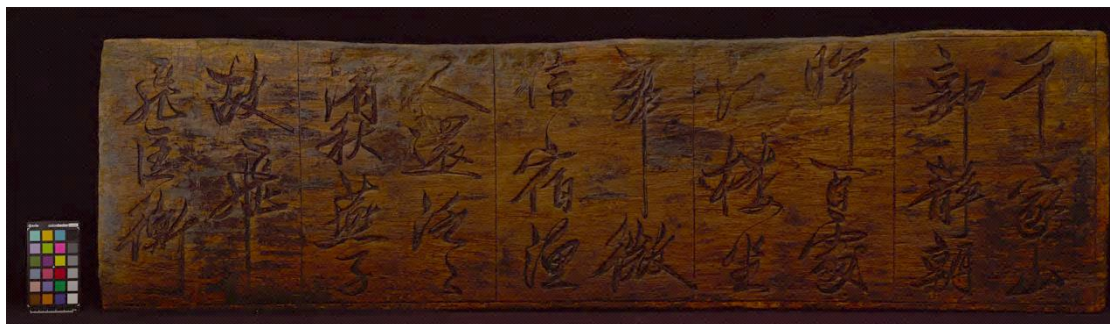 千家山
郭静朝
暉百處
江樓坐
翠微
信宿漁
人還泛〻
清秋燕子
故飛
飛匡衡